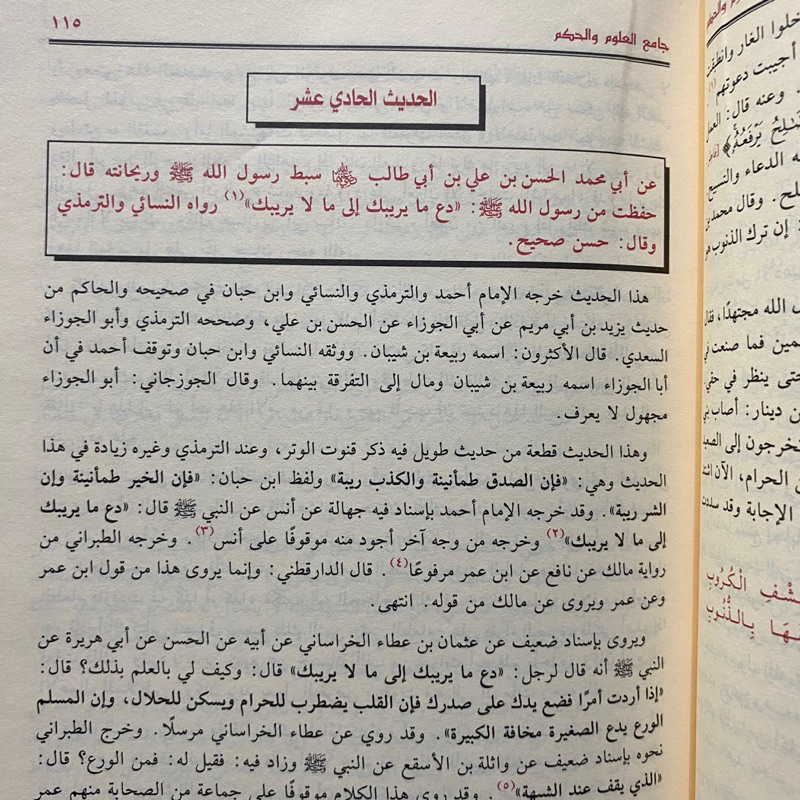 جامع العلوم والحكم
١١٥
الحديث الحادي عشر
عن أبي محمد الحسن بن علي بن أبي طالب رضي الله عنهما سبط رسول الله ﷺ وريحانته قال:
حفظت من رسول الله ﷺ: «دع ما يريبك إلى ما لا يريبك»(١) رواه النسائي والترمذي
وقال: حسن صحيح.
هذا الحديث خرجه الإمام أحمد والترمذي والنسائي وابن حبان في صحيحه والحاكم من
حديث يزيد بن أبي مريم عن أبي الجوزاء عن الحسن بن علي، وصححه الترمذي وأبو الجوزاء
السعدي. قال الأكثرون: اسمه ربيعة بن شيبان. ووثقه النسائي وابن حبان وتوقف أحمد في أن
أبا الجوزاء اسمه ربيعة بن شيبان ومال إلى التفرقة بينهما. وقال الجوزجاني: أبو الجوزاء
مجهول لا يعرف.
وهذا الحديث قطعة من حديث طويل فيه ذكر قنوت الوتر، وعند الترمذي وغيره زيادة في هذا
الحديث وهي: «فإن الصدق طمأنينة والكذب ريبة» ولفظ ابن حبان: «فإن الخير طمأنينة وإن
الشر ريبة». وقد خرجه الإمام أحمد بإسناد فيه جهالة عن أنس عن النبي ﷺ قال: «دع ما يريبك
إلى ما لا يريبك»(٢) وخرجه من وجه آخر أجود منه موقوفًا على أنس(٣). وخرجه الطبراني من
رواية مالك عن نافع عن ابن عمر مرفوعًا(٤). قال الدارقطني: وإنما يروى هذا من قول ابن عمر
وعن عمر ويروى عن مالك من قوله. انتهى.
ويروى بإسناد ضعيف عن عثمان بن عطاء الخراساني عن أبيه عن الحسن عن أبي هريرة عن
النبي ﷺ أنه قال لرجل: «دع ما يريبك إلى ما لا يريبك» قال: وكيف لي بالعلم بذلك؟ قال:
«إذا أردت أمرًا فضع يدك على صدرك فإن القلب يضطرب للحرام ويسكن للحلال، وإن المسلم
الورع يدع الصغيرة مخافة الكبيرة». وقد روي عن عطاء الخراساني مرسلًا. وخرج الطبراني
نحوه بإسناد ضعيف عن واثلة بن الأسقع عن النبي ﷺ وزاد فيه: فقيل له: فمن الورع؟ قال:
«الذي يقف عند الشبهة»(٥). وقد روي هذا الكلام موقوفًا على جماعة من الصحابة منهم عمر
دخلوا الغار
أجيبت دعوتهم(١).
وعنه قال: العمل
يَرْفَعُهُ﴾
الدعاء والتسبيح
وقال محمد بن
إن ترك الذنوب هو
الله مجتهدًا، فقال
فما صنعت في
حتى ينظر في خفي
بن دينار: أصاب بني
تخرجون إلى الصعيد
الحرام، الآن اشتد
الإجابة وقد سددت
الْكُرُوبِ
بِالذُّنُوبِ